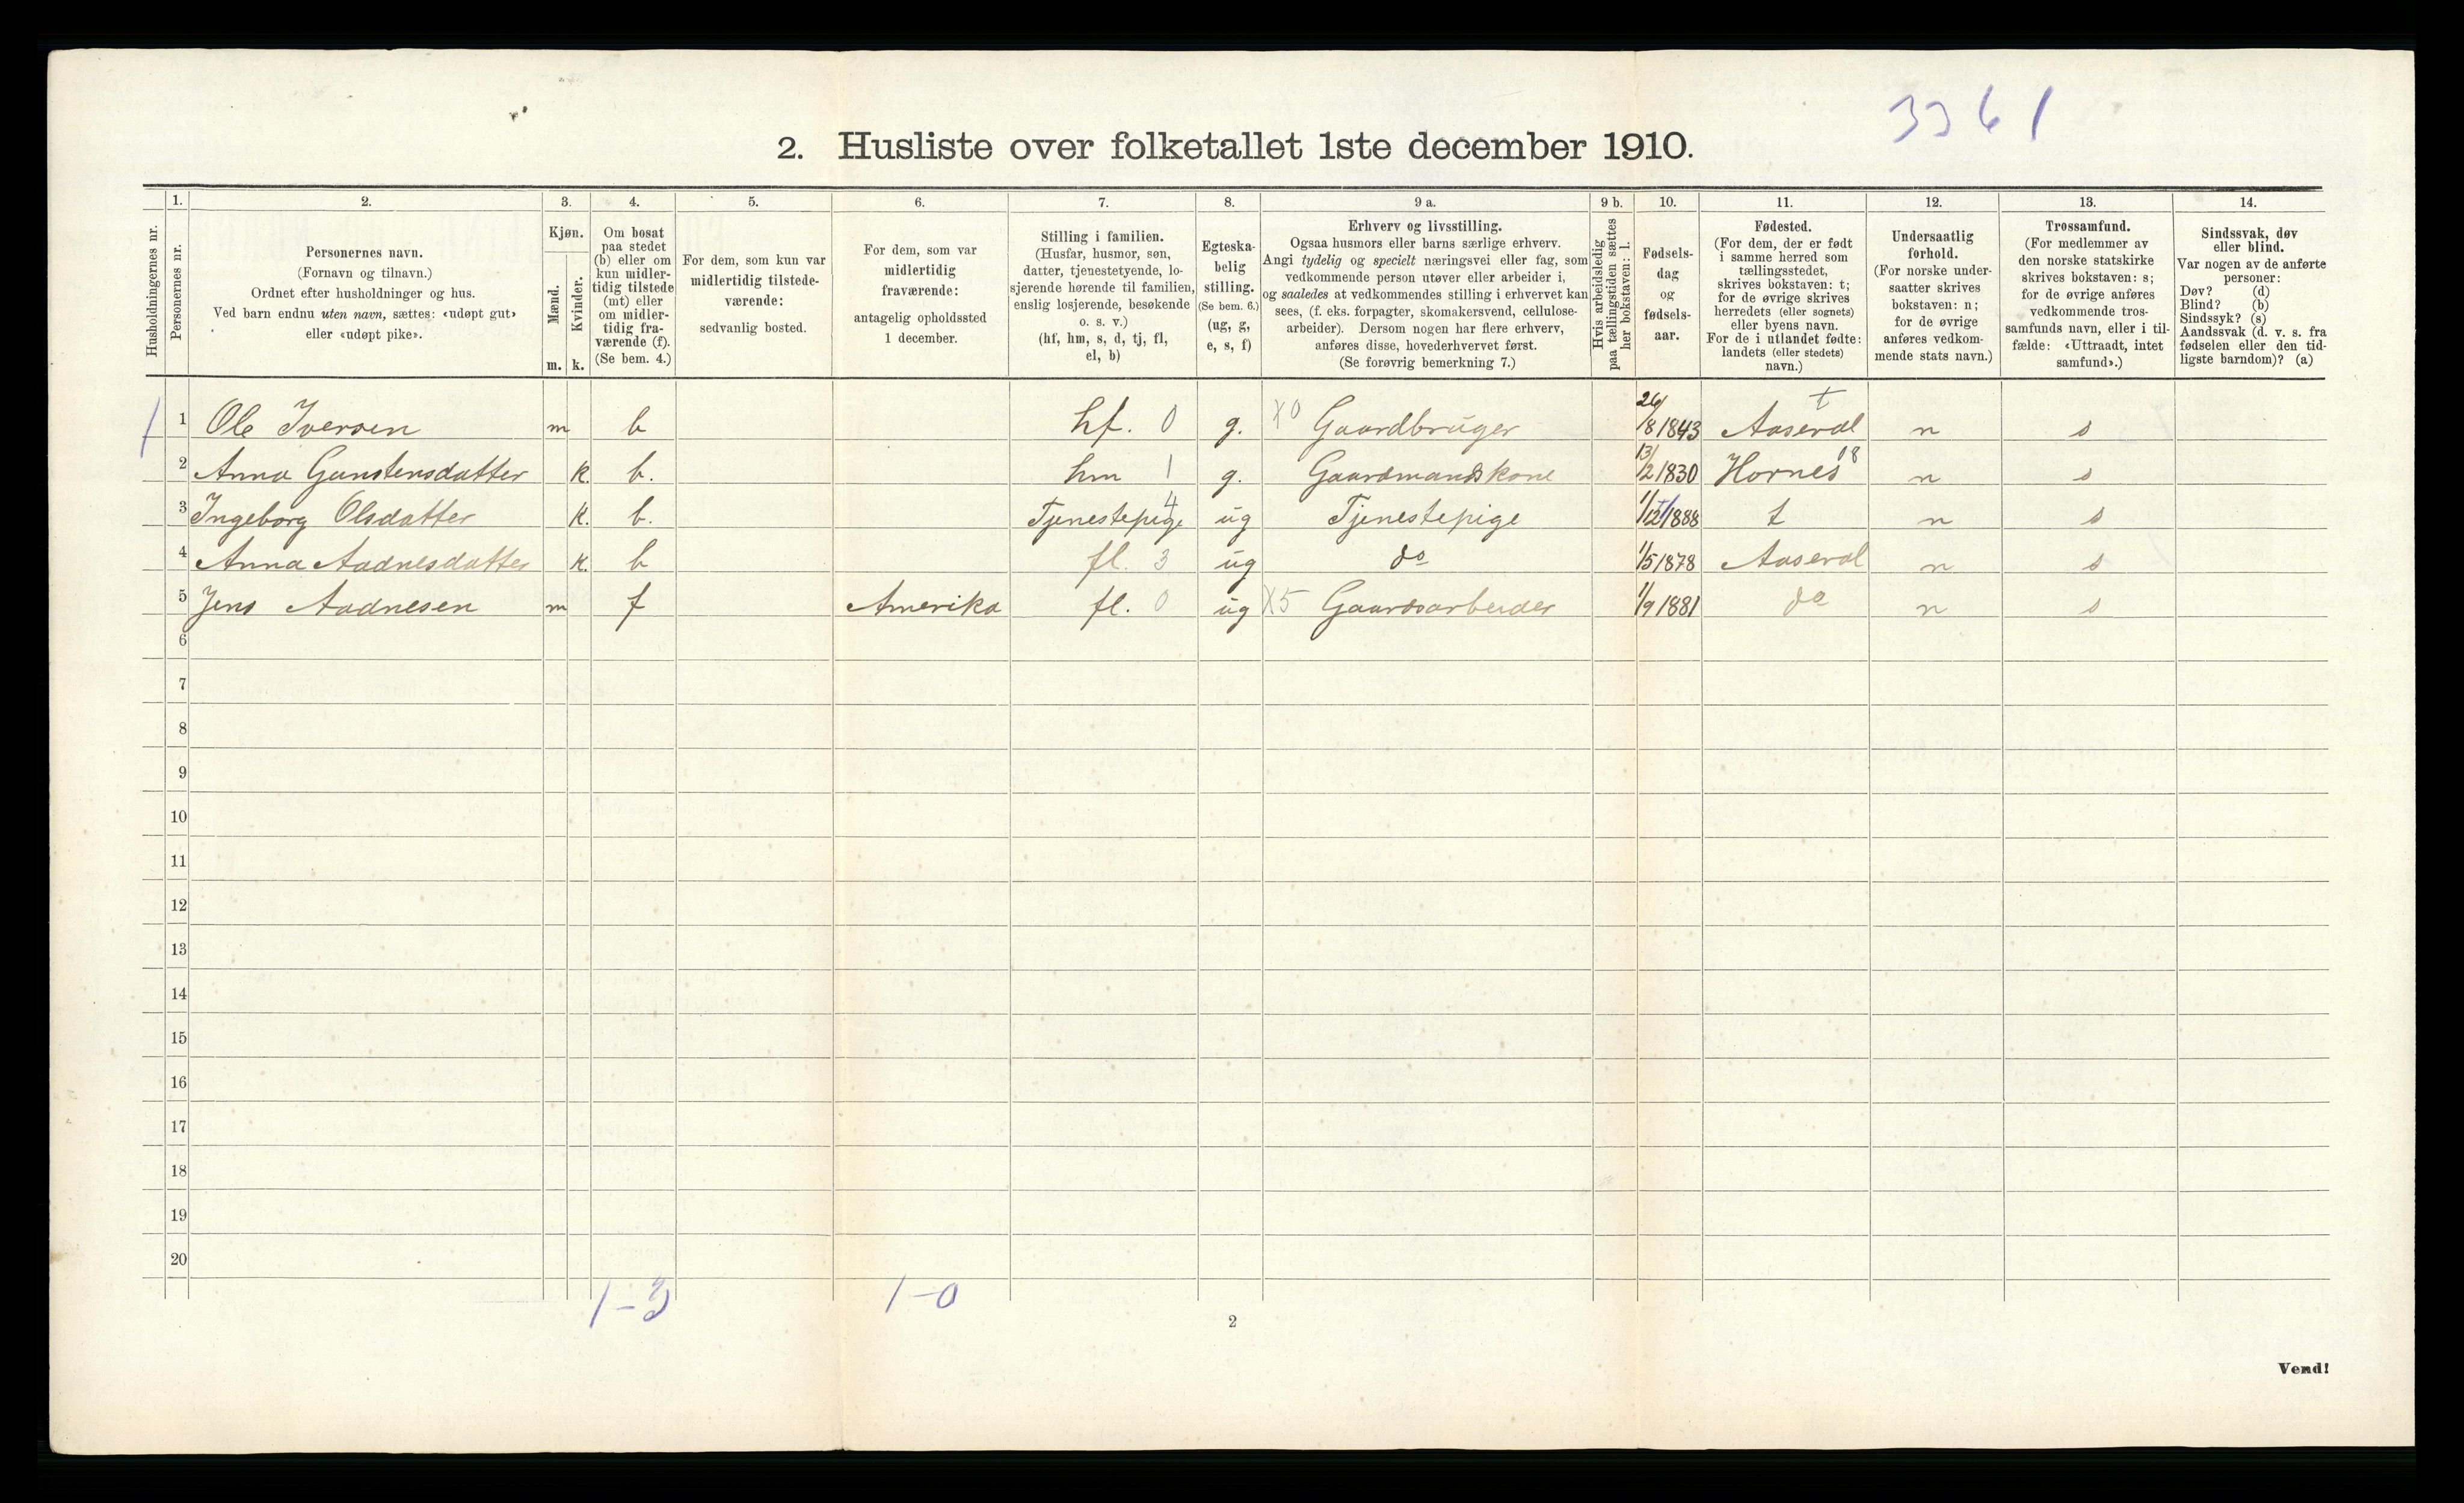 3361
2. Husliste over folketallet 1ste december 1910.
Husholdningernes nr.
1.
Personernes nr.
2.
Personernes navn.
(Fornavn og tilnavn.)
Ordnet efter husholdninger og hus.
Ved barn endnu uten navn, sættes: «udøpt gut»
eller «udøpt pike».
3.
Kjøn.
Mænd.
Kvinder.
m. k.
4.
Om bosat
paa stedet
(b) eller om
kun midler-
tidig tilstede
(mt) eller
om midler-
tidig fra-
værende (f).
(Se bem. 4.)
5.
For dem, som kun var
midlertidig tilstede-
værende:
sedvanlig bosted.
6.
For dem, som var
midlertidig
fraværende:
antagelig opholdssted
1 december.
7.
Stilling i familien.
(Husfar, husmor, søn,
datter, tjenestetyende, lo-
sjerende hørende til familien,
enslig losjerende, besøkende
o. s. v.)
(hf, hm, s, d, tj, fl,
el, b)
8.
Egteska-
belig
stilling.
(Se bem. 6.)
(ug, g,
e, s, f)
9 a.
Erhverv og livsstilling.
Ogsaa husmors eller barns særlige erhverv.
Angi tydelig og specielt næringsvei eller fag, som
vedkommende person utøver eller arbeider i,
og saaledes at vedkommendes stilling i erhvervet kan
sees, (f. eks. forpagter, skomakersvend, cellulose-
arbeider). Dersom nogen har flere erhverv,
anføres disse, hovederhvervet først.
(Se forøvrig bemerkning 7.)
9 b.
Hvis arbeidsledig
paa tællingstiden sættes
her bokstaven: l.
10.
Fødsels-
dag
og
fødsels-
aar.
11.
Fødested.
(For dem, der er født
i samme herred som
tællingsstedet,
skrives bokstaven: t;
for de øvrige skrives
herredets (eller sognets)
eller byens navn.
For de i utlandet fødte:
landets (eller stedets)
navn.)
12.
Undersaatlig
forhold.
(For norske under-
saatter skrives
bokstaven: n;
for de øvrige
anføres vedkom-
mende stats navn.)
13.
Trossamfund.
(For medlemmer av
den norske statskirke
skrives bokstaven: s;
for de øvrige anføres
vedkommende tros-
samfunds navn, eller i til-
fælde: «Uttraadt, intet
samfund».)
14.
Sindssvak, døv
eller blind.
Var nogen av de anførte
personer:
Døv? (d)
Blind? (b)
Sindssyk? (s)
Aandssvak (d. v. s. fra
fødselen eller den tid-
ligste barndom)? (a)
1 1 Ole Iversen m b hf. 0 g. X0 Gaardbruger 26/8 1843 Aaseral t n s
2 Anna Gunstensdatter k. b. hm 1 g. Gaardmandskone 13/2 1830 Hornes 18 n s
3 Ingeborg Olsdatter k. b. Tjenestepige 4 ug Tjenestepige 1/12 1888 t n s
4 Anna Aadnesdatter k. b fl. 3 ug do 1/5 1878 Aaseral n s
5 Jens Aadnesen m f Amerika fl. 0 ug X5 Gaardsarbeider 1/9 1881 do n s
6
7
8
9
10
11
12
13
14
15
16
17
18
19
20
1-3 1-0
2
Vend!